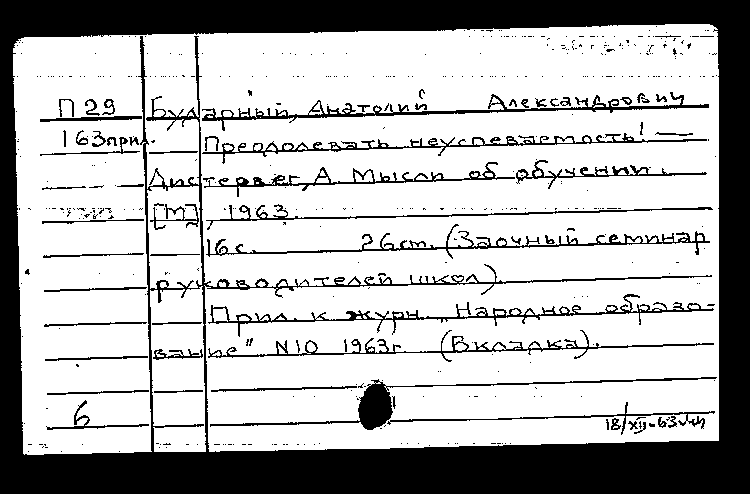 П 29 Бударный, Анатолий Александрович
163прил. Преодолевать неуспеваемость! —
Дистервег, А. Мысли об обучении.
[М], 1963.
16 с. 26 см. (Заочный семинар
руководителей школ).
Прил. к журн. „Народное образо-
вание" N10 1963г. (Вкладка).
6
18/XII-63